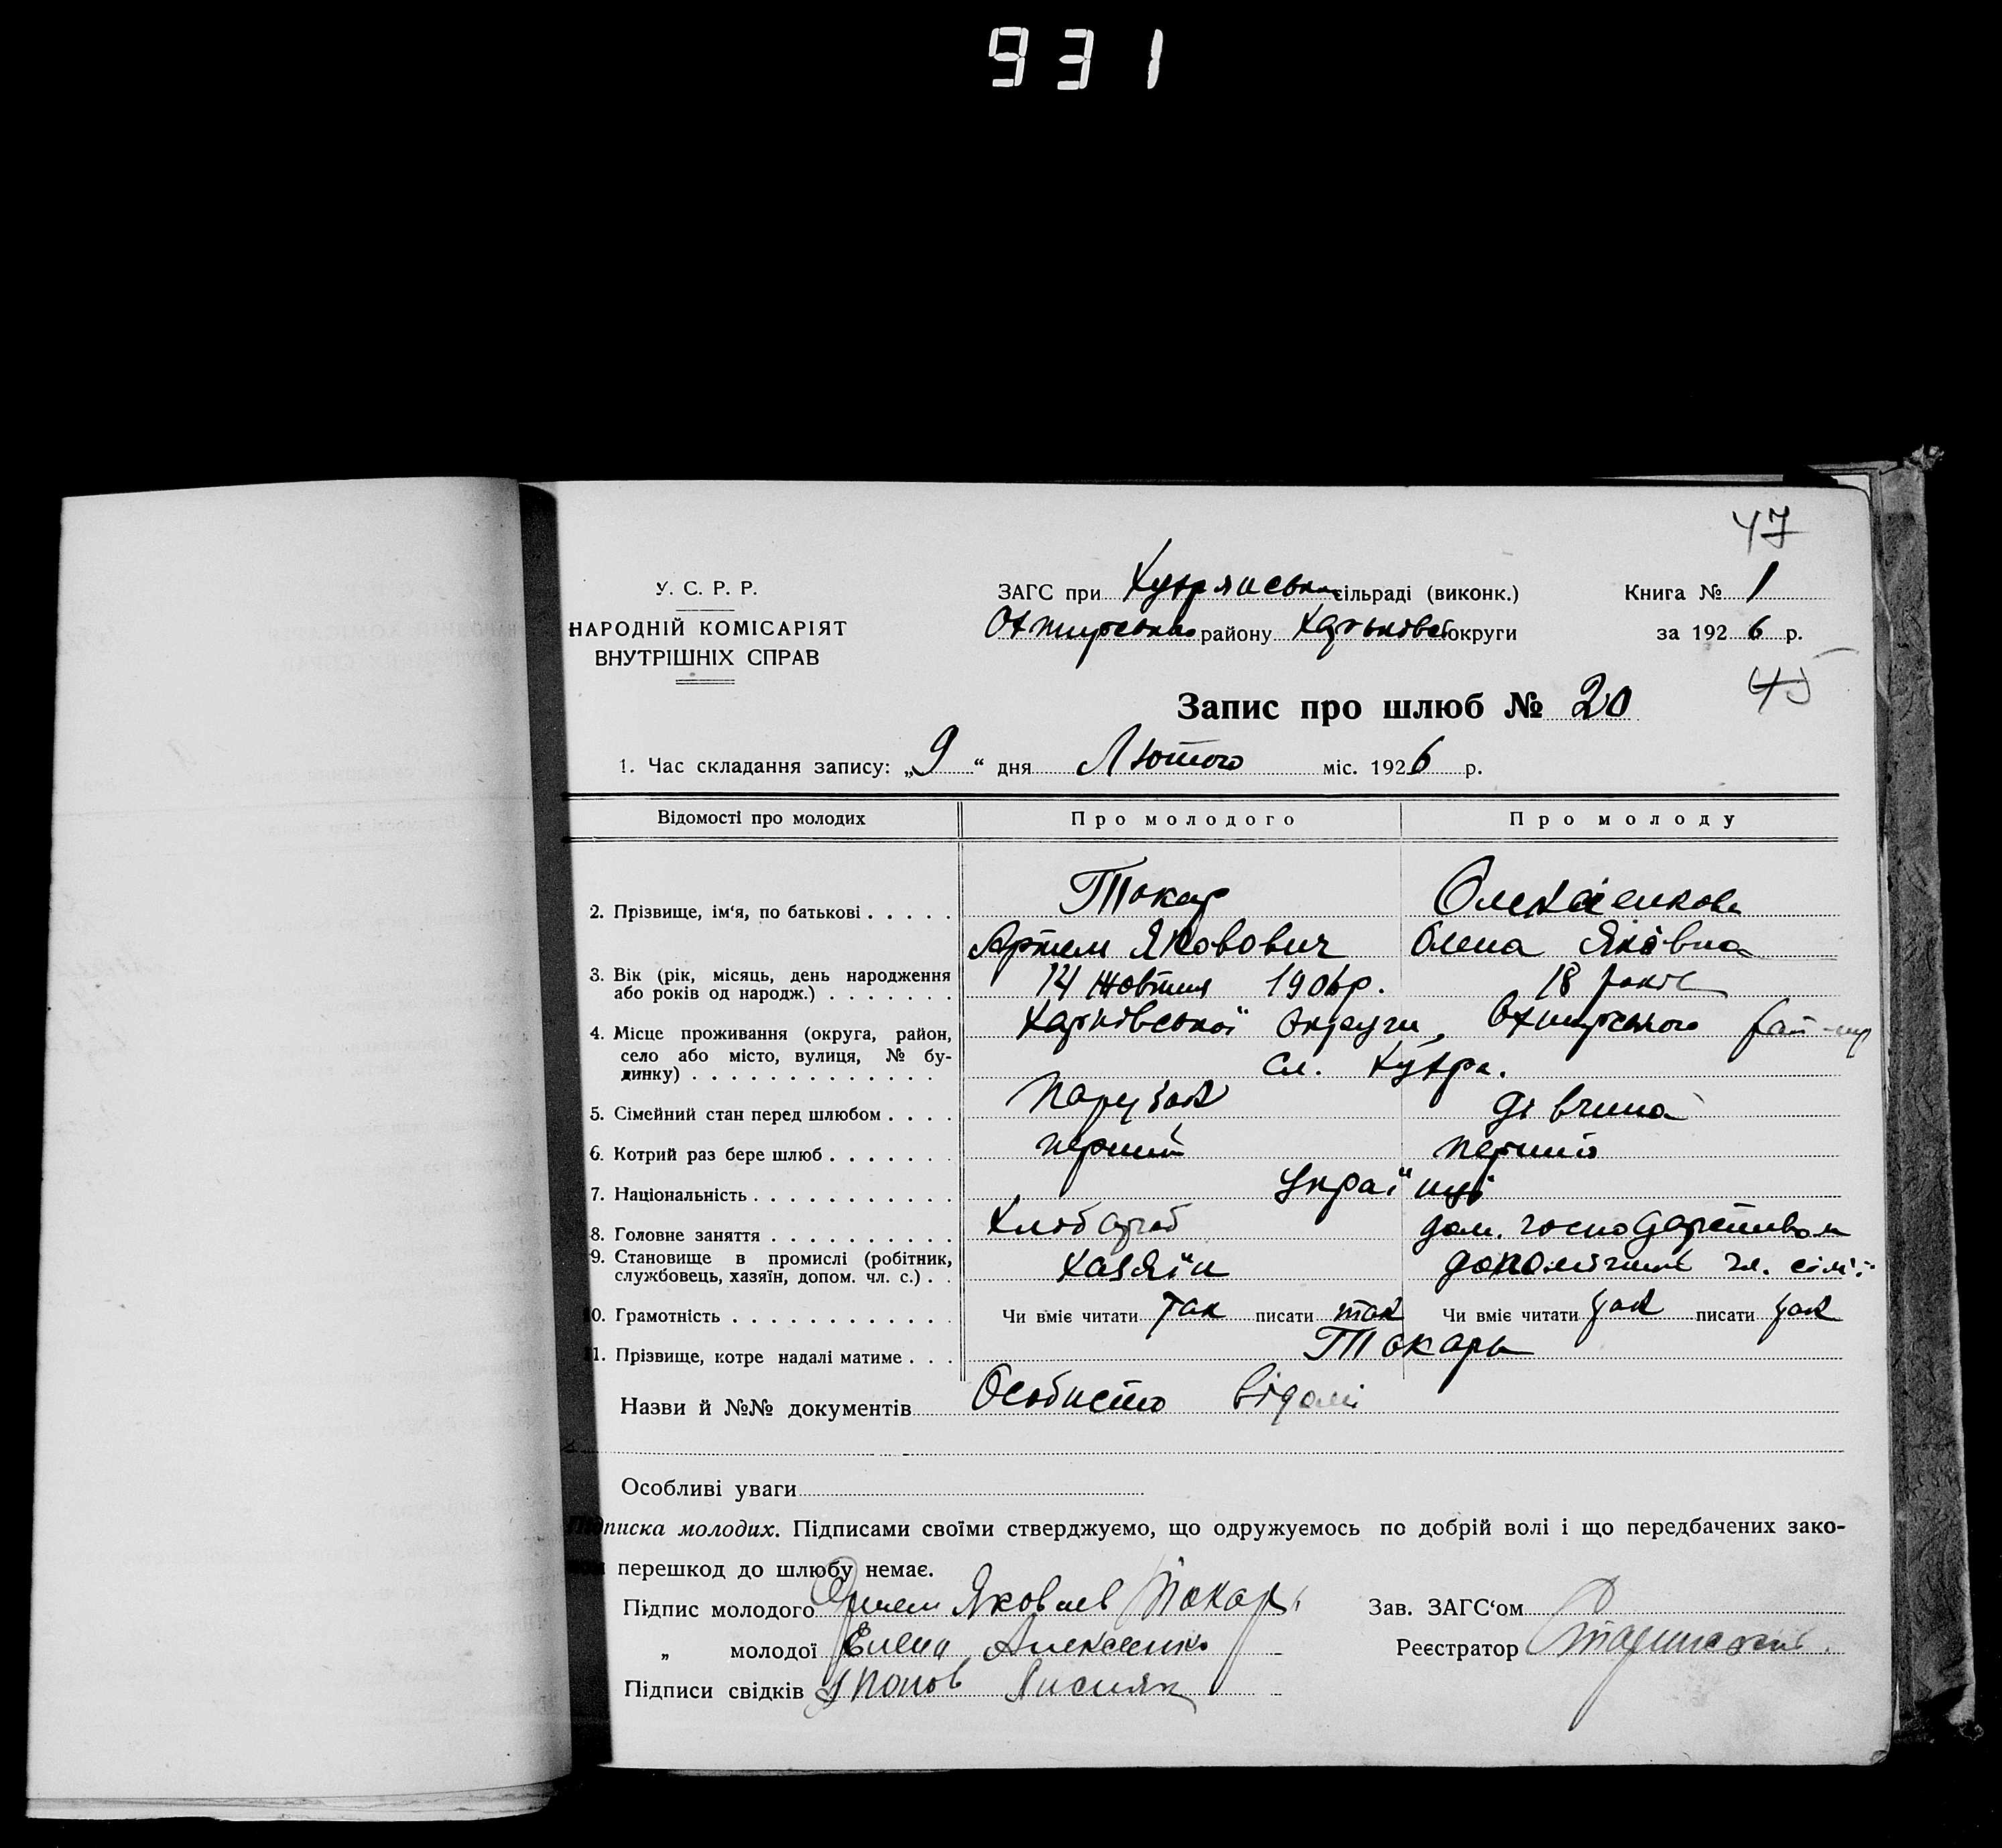 931
47
У. С. Р. Р.
НАРОДНІЙ КОМІСАРІЯТ
ВНУТРІШНІХ СПРАВ
ЗАГС при Хухрянськ сільраді (виконк.)
Охтирського району Харьковсь округи
Книга № 1
за 1926 р.
45
Запис про шлюб № 20
1. Час складання запису: „9“ дня Лютого міс. 1926 р.
Відомості про молодих Про молодого Про молоду
Токар
2. Прізвище, ім'я, по батькові
Артем Яковович Олена Яківна
3. Вік (рік, місяць, день народження 14 жовтня 18 років
або років од народж.)
4. Місце проживання (округа, район, Харківської Округи, Охтирського рай-ну
село або місто, вулиця, № бу- сл. Хухра.
динку)
5. Сімейний стан перед шлюбом Парубок дівчина
6. Котрий раз бере шлюб перший перший
7. Національність Українці
8. Головне заняття Хлібороб дом. господарством
9. Становище в промислі (робітник, хазяїн чл. сім'ї
службовець, хазяїн, допом. чл. с.)
10. Грамотність Чи вміє читати так писати так Чи вміє читати так писати так
11. Прізвище, котре надалі матиме Токарь
Назви й №№ документів Особисто відомі
Особливі уваги
Підписка молодих. Підписами своїми стверджуємо, що одружуемось по добрій волі і що передбачених зако-
перешкод до шлюбу немає.
Підпис молодого Артем Яковлев Токарь Зав. ЗАГС'ом
„ молодої Елена Алексеенко Реєстратор
Підписи свідків Попов Лисняк